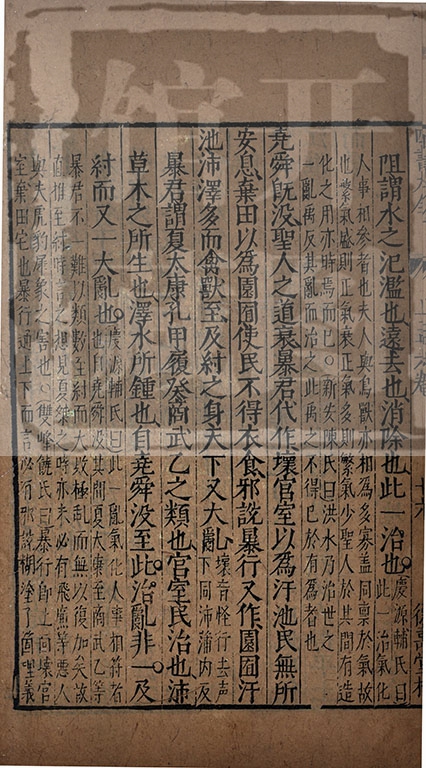 阻謂水之氾濫也遠去也消除也此一治也慶源輔氏曰
此一治氣化
人事相參者也夫人與鳥獸亦相為多寡蓋同禀於氣故
也繁氣盛則正氣衰正氣多則繁氣少聖人於其間有造
化之用亦時焉而已○新安陳氏曰洪水乃治世之
一亂禹反其亂而治之此禹之不得已於有為者也
堯舜旣沒聖人之道衰暴君代作壞宫室以爲汙池民無所
安息棄田以爲園囿使民不得衣食邪說暴行又作園囿汙
池沛澤多而禽獸至及紂之身天下又大亂壞音怪行去声
下同沛蒲内反
暴君謂夏太康孔甲履癸商武乙之類也宫室民治也沛
草木之所生也澤水所鍾也自堯舜没至此治亂非一及
紂而又一大亂也慶源輔氏曰此一亂氣化人事相符者
也自堯舜没其間夏太康至商武乙等
暴君不一難以類數至紂而大敗極亂而無以復加矣故
直推至紂時言之想見夏桀之時亦未必有飛廉等惡人
與夫虎豹犀象之害也○雙峰饒氏曰暴行即上面壞宫
室棄田宅也暴行通上下而言必有邪說糊塗了箇理義